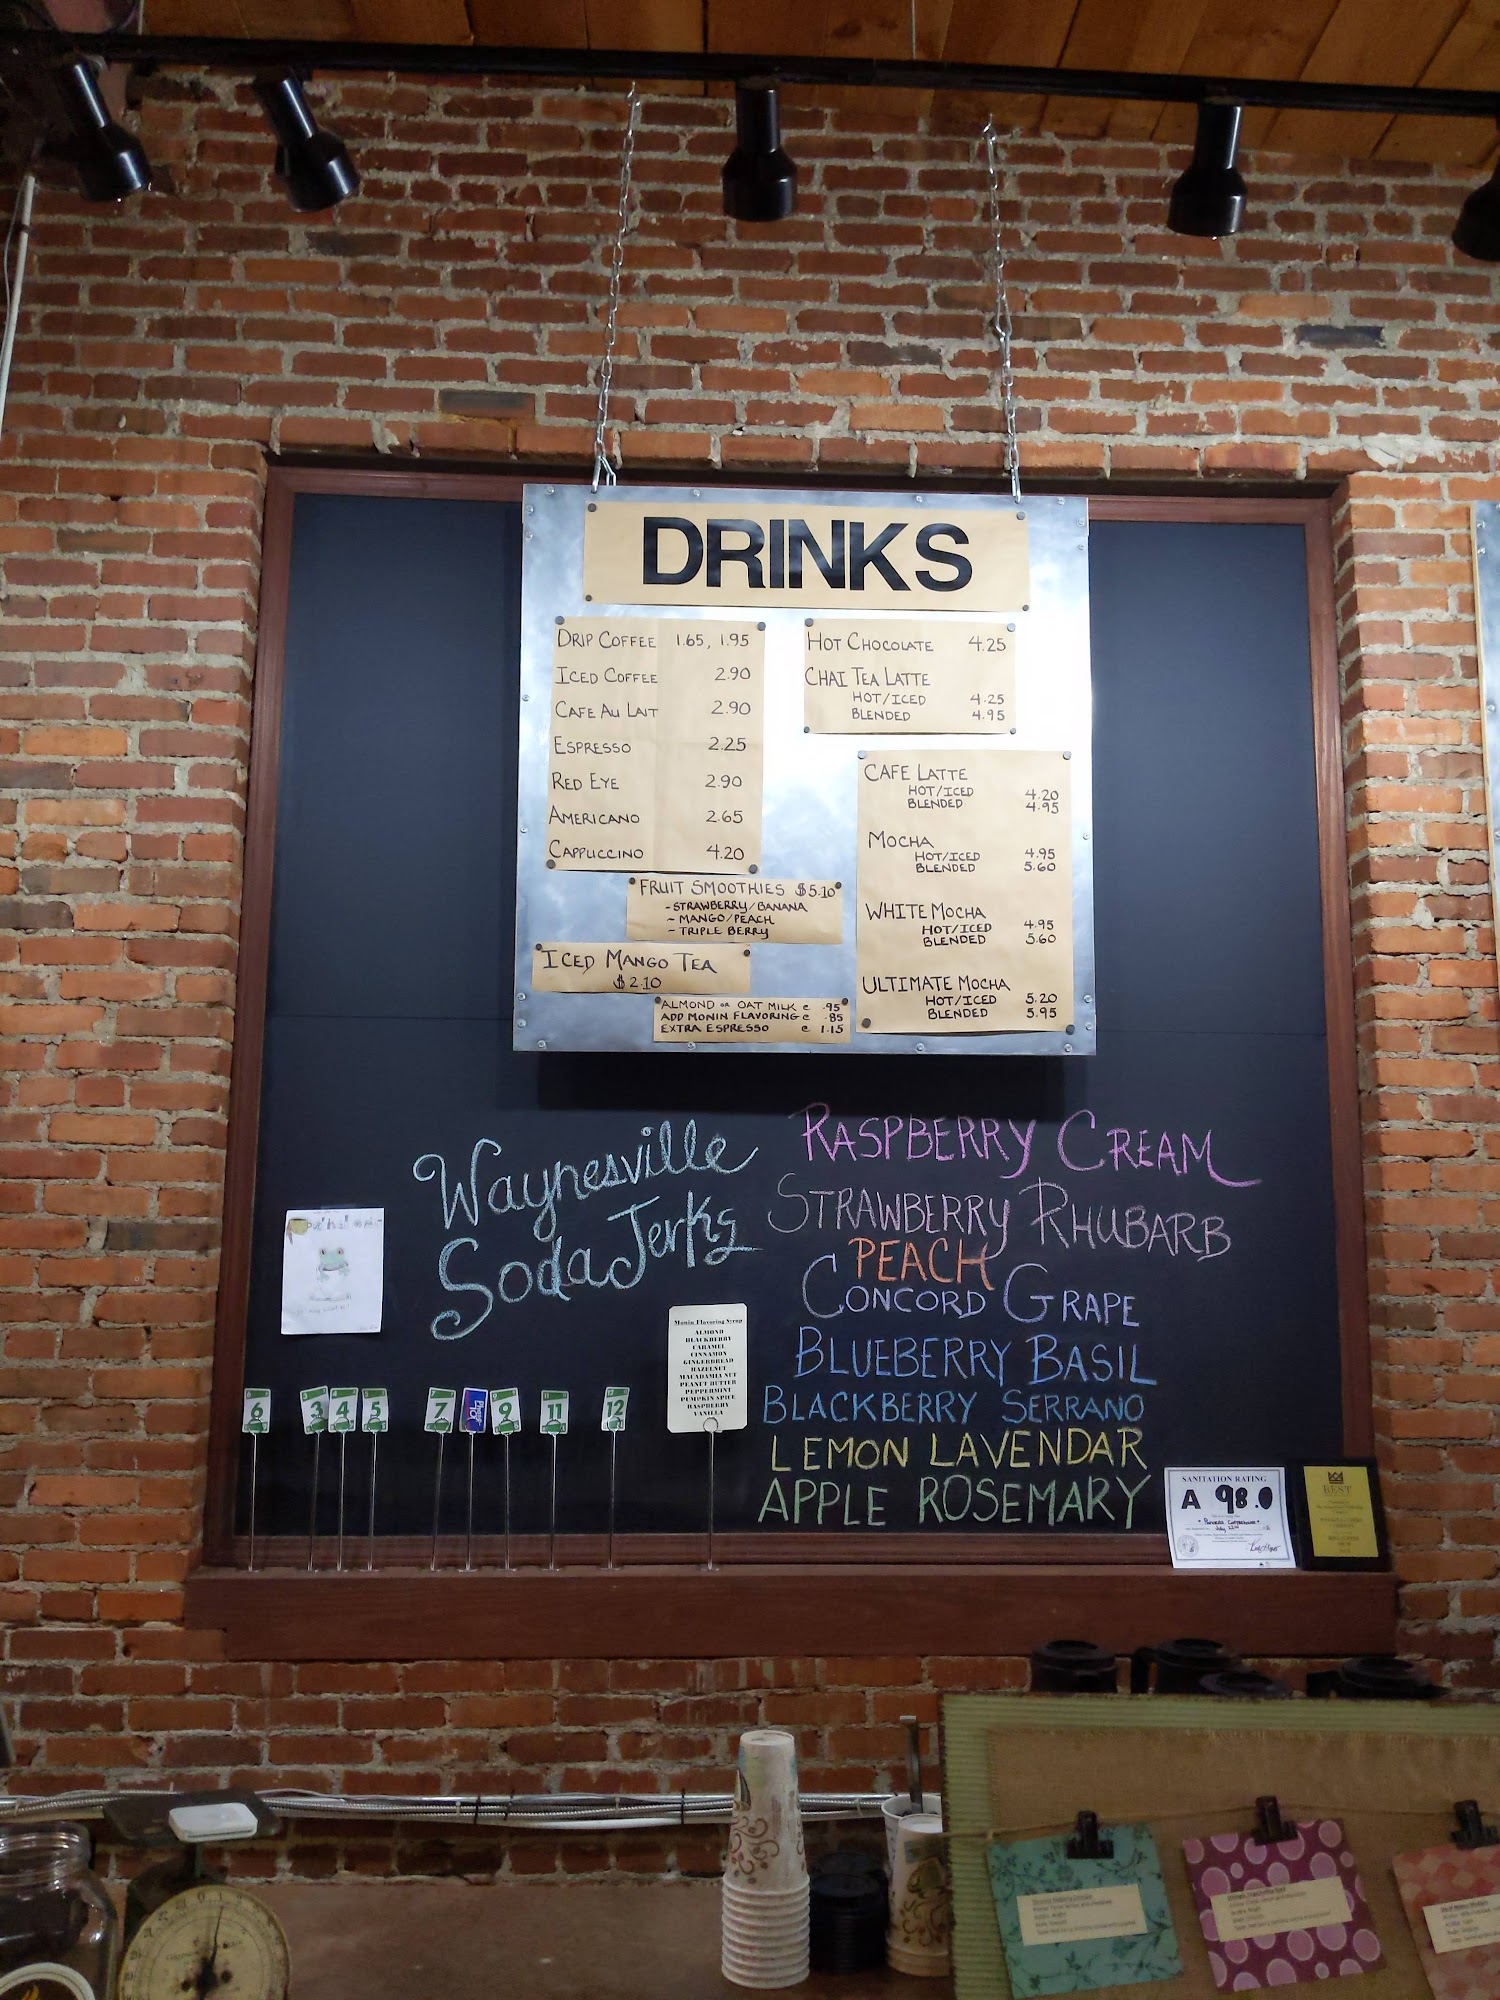 DRINKS
DRIP COFFEE 1.65, 1.95
ICED COFFEE 2.90
CAFE AU LAIT 2.90
ESPRESSO 2.25
RED EYE 2.90
AMERICANO 2.65
CAPPUCCINO 4.20
HOT CHOCOLATE 4.25
CHAI TEA LATTE
HOT/ICED 4.25
BLENDED 4.95
CAFE LATTE
HOT/ICED 4.20
BLENDED 4.95
MOCHA
HOT/ICED 4.95
BLENDED 5.60
WHITE MOCHA
HOT/ICED 4.95
BLENDED 5.60
ULTIMATE MOCHA
HOT/ICED 5.20
BLENDED 5.95
FRUIT SMOOTHIES $5.10
- STRAWBERRY/BANANA
- MANGO/PEACH
- TRIPLE BERRY
ICED MANGO TEA
$2.10
ALMOND OR OAT MILK @ .95
ADD MONIN FLAVORING @ .85
EXTRA ESPRESSO @ 1.15
Waynesville
Soda Jerks
RASPBERRY CREAM
STRAWBERRY RHUBARB
PEACH
CONCORD GRAPE
BLUEBERRY BASIL
BLACKBERRY SERRANO
LEMON LAVENDAR
APPLE ROSEMARY
Monin Flavoring Syrup
ALMOND
BLACKBERRY
CARAMEL
CINNAMON
GINGERBREAD
HAZELNUT
MACADAMIA NUT
PEANUT BUTTER
PEPPERMINT
PUMPKIN SPICE
RASPBERRY
VANILLA
6 3 4 5 7 9 11 12
SANITATION RATING
A 98.0
BEST